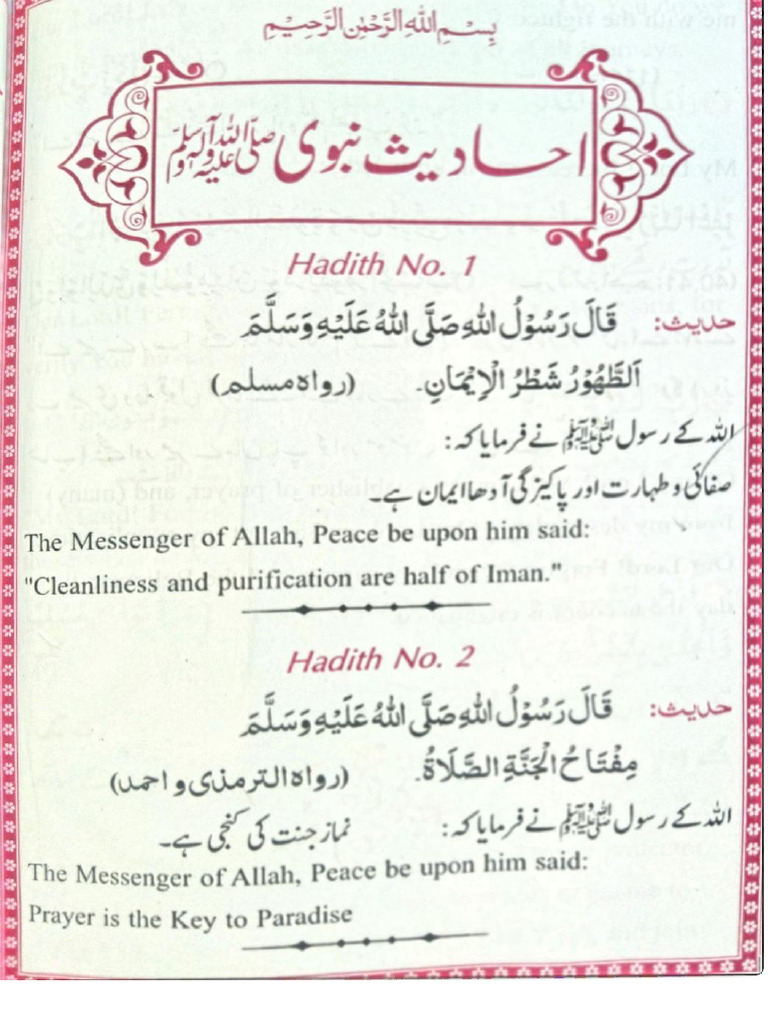 بِسْمِ اللهِ الرَّحْمٰنِ الرَّحِيْمِ
احادیث نبوی صلی اللہ علیہ وآلہ وسلم
Hadith No. 1
حدیث: قَالَ رَسُوْلُ اللهِ صَلَّى اللهُ عَلَيْهِ وَسَلَّمَ
اَلطَّهُوْرُ شَطْرُ الْاِيْمَانِ. (رواہ مسلم)
اللہ کے رسول ﷺ نے فرمایا کہ:
صفائی و طہارت اور پاکیزگی آدھا ایمان ہے۔
The Messenger of Allah, Peace be upon him said:
"Cleanliness and purification are half of Iman."
Hadith No. 2
حدیث: قَالَ رَسُوْلُ اللهِ صَلَّى اللهُ عَلَيْهِ وَسَلَّمَ
مِفْتَاحُ الْجَنَّةِ الصَّلَاةُ. (رواہ الترمذی و احمد)
اللہ کے رسول ﷺ نے فرمایا کہ: نماز جنت کی کنجی ہے۔
The Messenger of Allah, Peace be upon him said:
Prayer is the Key to Paradise